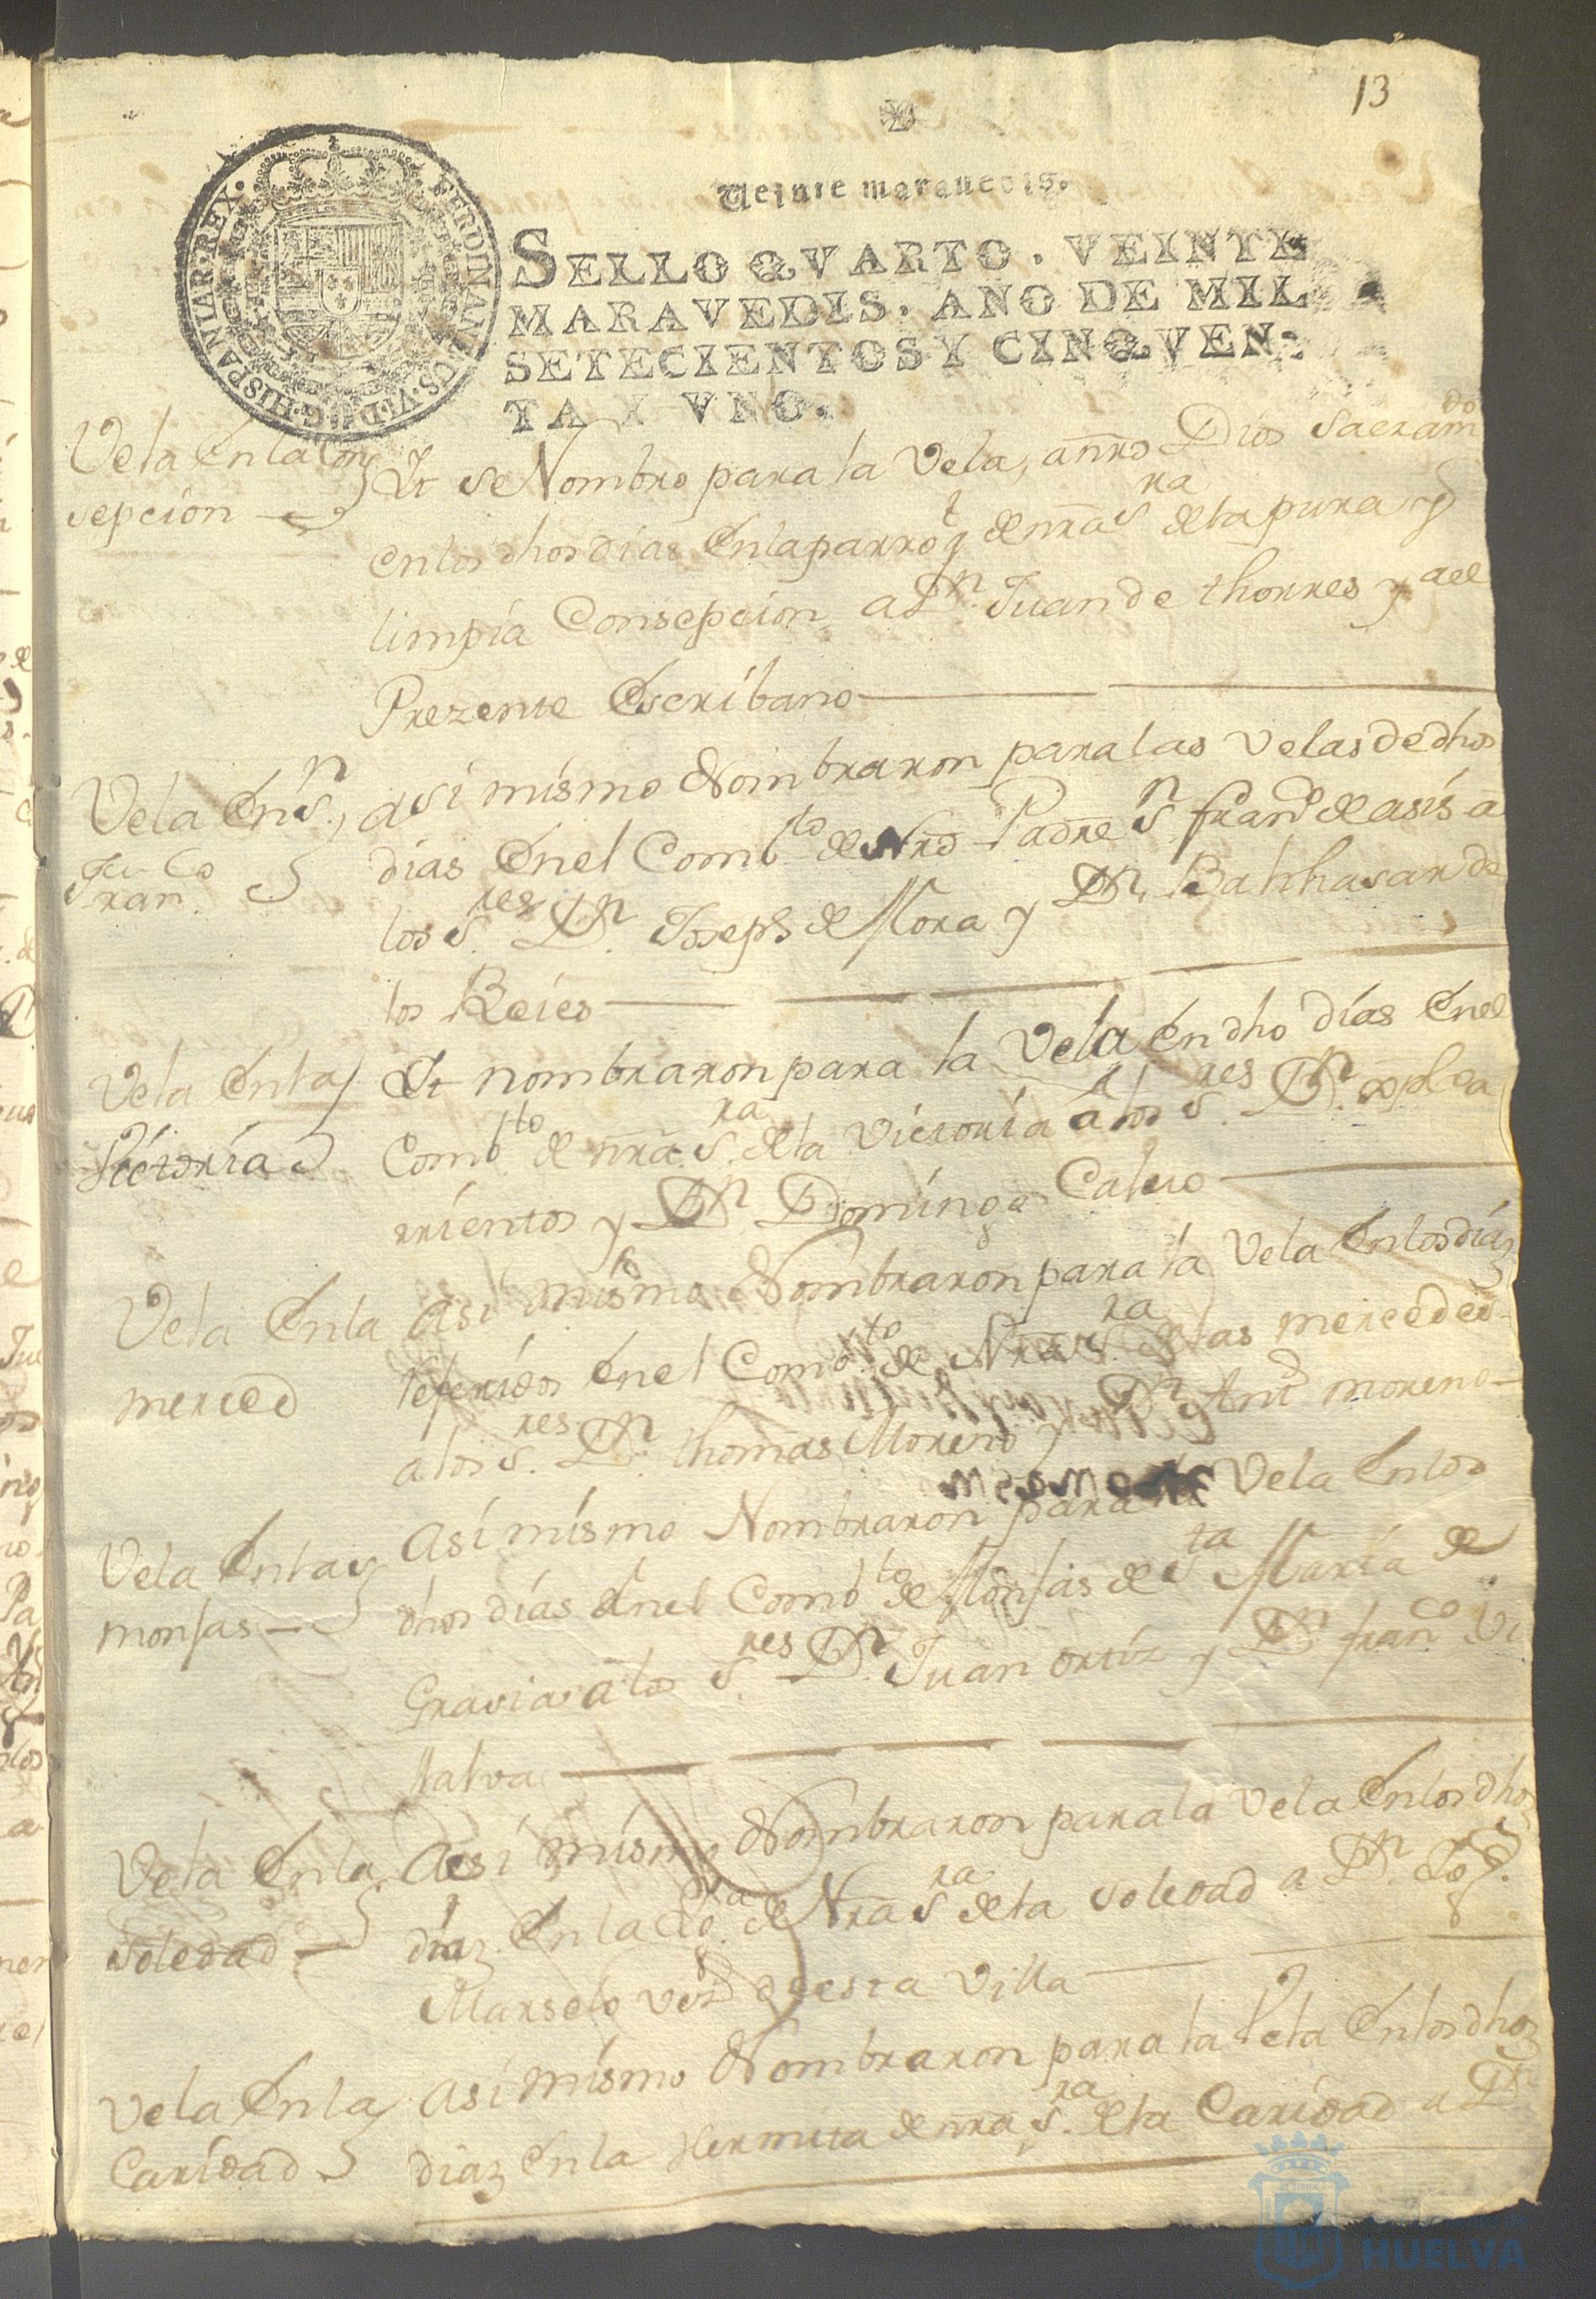 13
Veinte maravedis.
SELLO QVARTO. VEINTE
MARAVEDIS. AÑO DE MIL
SETECIENTOS Y CINQVEN-
TA Y VNO.
FERDINANDUS.VI.D.G.HISPANIAR.REX.
Vela Enla Con
sepcion
It se Nombro para la Vela, a nrō Dios Sacramdo
enlos dhos dias Enla parroqt de nrā Sra de la pura y
limpia Consepcion a Dn. Juan de thorres y a el
Prezente Escribano
Vela En Sn.
Franco
asi mismo Nombraron para las Velas de dhos
dias Enel Combto de Nrō Padre Sn. franco de asis a
los Sres. Dn. Joseph de Mora y Dn. Balthasar de
los Reies
Vela Enla
Victoria
It nombraron para la Vela En dho dias Enel
Combto de nrā. Sra. de la Victoria a los Sres. Dn.
rrientos y Dn. Domingo Calvo
Vela Enla
merced
Asi mismo Nombraron para la Vela Enlos dias
referidos Enel Combto de Nrā Sra. de las mercedes
a los Sres. Dn. thomas Moreno y Dn. Anto moreno
Vela Enlas
monjas
Asi mismo Nombraron para la Vela Enlos
dhos dias Enel Combto de Monjas de Sta Maria de
Gracia a los Sres. Dn. Juan ortiz y Dn franco Vi
llalva
Vela Enla
Soledad
Asi mismo Nombraron para la Vela Enlos dhoz
diaz Enla de Nrā Sra de la Soledad a Dn.
Marselo vezo de esta Villa
Vela Enla
Caridad
Asi mismo Nombraron para la Vela Enlos dhoz
diaz Enla Hermita de nrā Sra. de la Caridad a Dn
HUELVA